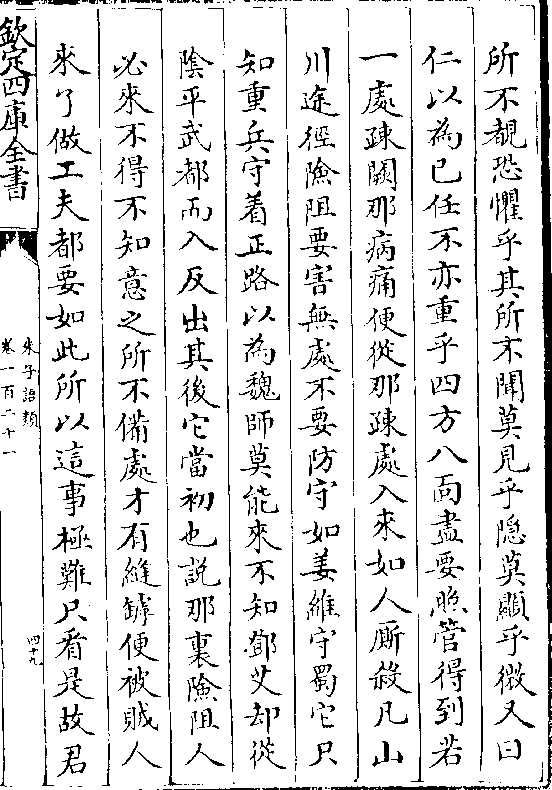 所不覩恐懼乎其所不聞莫見乎隐莫顯乎微又曰
仁以為已任不亦重乎四方八面盡要照管得到若
一處疎闕那病痛便從那疎處入來如人厮殺凡山
川途徑險阻要害無處不要防守如姜維守蜀它只
知重兵守着正路以為魏師莫能來不知鄧艾却從
陰平武都而入反出其後它當初也説那裏險阻人
必來不得不知意之所不備處才有縫罅便被賊人
來了做工夫都要如此所以這事極難只看是故君
欽定四庫全書
朱子語類
卷一百二十一
四十九